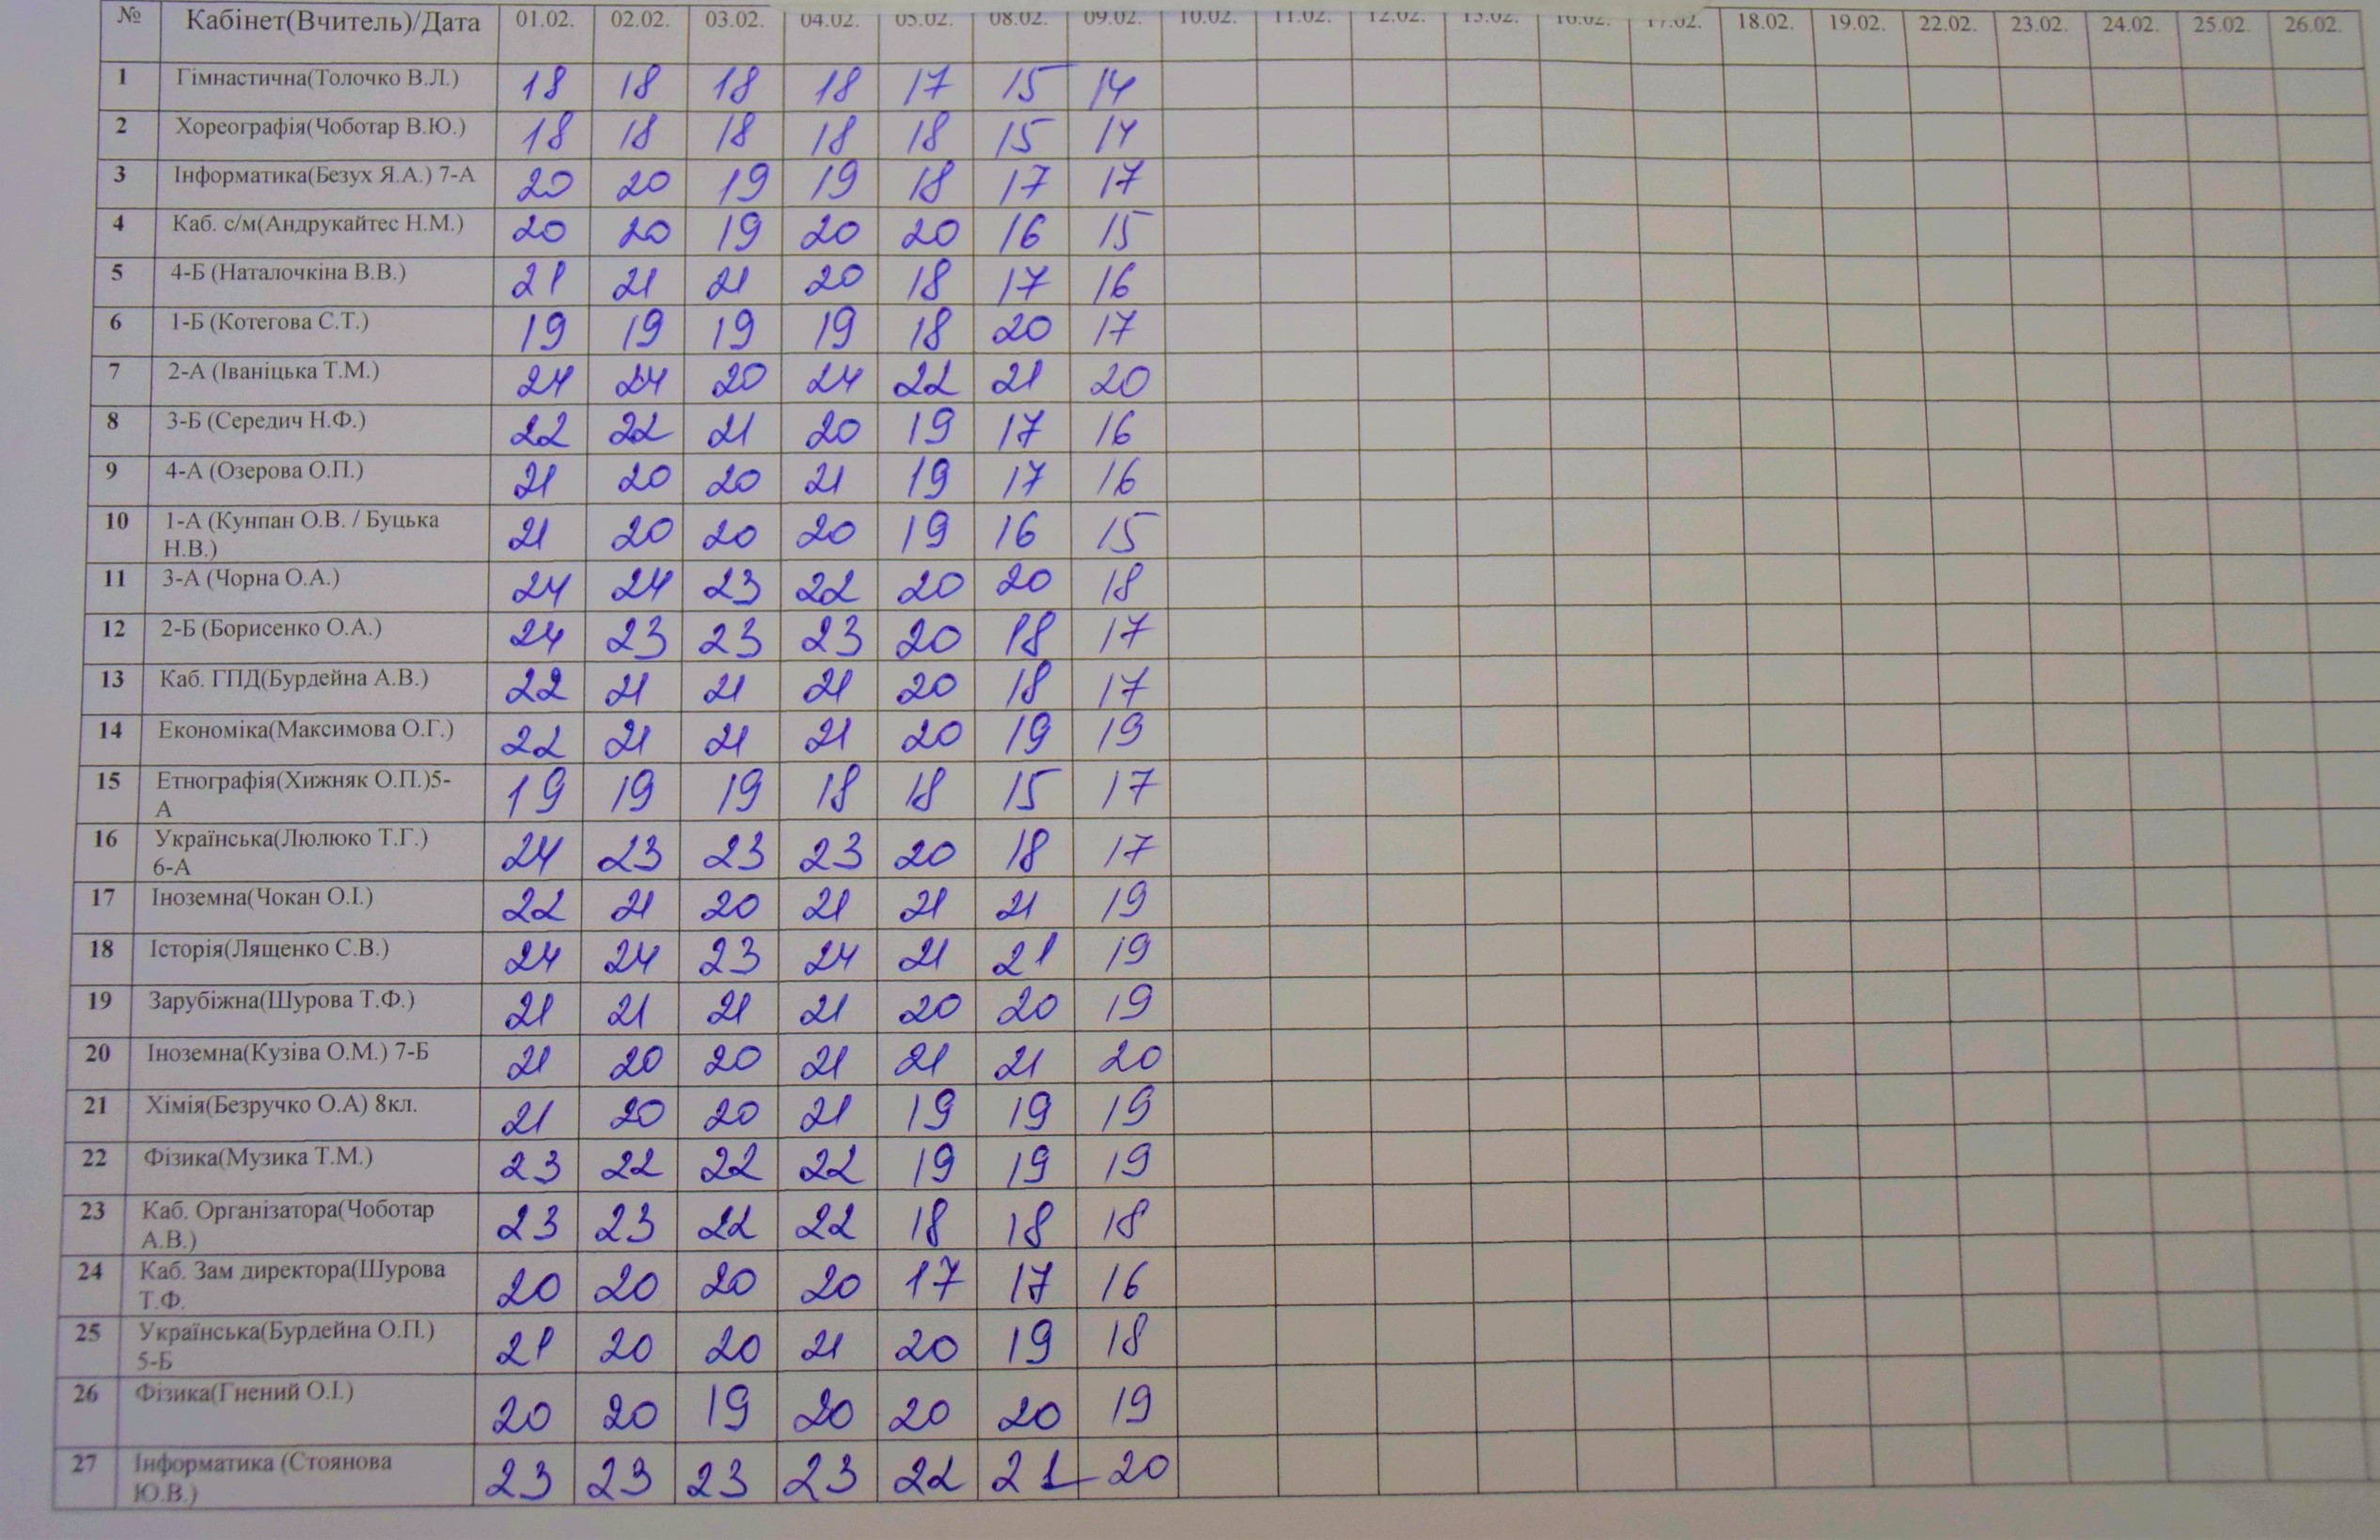 № Кабінет(Вчитель)/Дата 01.02. 02.02. 03.02. 04.02. 05.02. 08.02. 09.02. 10.02. 11.02. 12.02. 15.02. 16.02. 17.02. 18.02. 19.02. 22.02. 23.02. 24.02. 25.02. 26.02.
1 Гімнастична(Толочко В.Л.) 18 18 18 18 17 15 14
2 Хореографія(Чоботар В.Ю.) 18 18 18 18 18 15 14
3 Інформатика(Безух Я.А.) 7-А 20 20 19 19 18 17 17
4 Каб. с/м(Андрукайтес Н.М.) 20 20 19 20 20 16 15
5 4-Б (Наталочкіна В.В.) 21 21 21 20 18 17 16
6 1-Б (Котегова С.Т.) 19 19 19 19 18 20 17
7 2-А (Іваніцька Т.М.) 24 24 20 24 22 21 20
8 3-Б (Середич Н.Ф.) 22 22 21 20 19 17 16
9 4-А (Озерова О.П.) 21 20 20 21 19 17 16
10 1-А (Кунпан О.В. / Буцька
Н.В.) 21 20 20 20 19 16 15
11 3-А (Чорна О.А.) 24 24 23 22 20 20 18
12 2-Б (Борисенко О.А.) 24 23 23 23 20 18 17
13 Каб. ГПД(Бурдейна А.В.) 22 21 21 21 20 18 17
14 Економіка(Максимова О.Г.) 22 21 21 21 20 19 19
15 Етнографія(Хижняк О.П.)5-
А 19 19 19 18 18 15 17
16 Українська(Люлюко Т.Г.)
6-А 24 23 23 23 20 18 17
17 Іноземна(Чокан О.І.) 22 21 20 21 21 21 19
18 Історія(Лященко С.В.) 24 24 23 24 21 21 19
19 Зарубіжна(Шурова Т.Ф.) 21 21 21 21 20 20 19
20 Іноземна(Кузіва О.М.) 7-Б 21 20 20 21 21 21 20
21 Хімія(Безручко О.А) 8кл. 21 20 20 21 19 19 19
22 Фізика(Музика Т.М.) 23 22 22 22 19 19 19
23 Каб. Організатора(Чоботар
А.В.) 23 23 22 22 18 18 18
24 Каб. Зам директора(Шурова
Т.Ф. 20 20 20 20 17 17 16
25 Українська(Бурдейна О.П.)
5-Б 21 20 20 21 20 19 18
26 Фізика(Гнений О.І.) 20 20 19 20 20 20 19
27 Інформатика (Стоянова
Ю.В.) 23 23 23 23 22 21 20